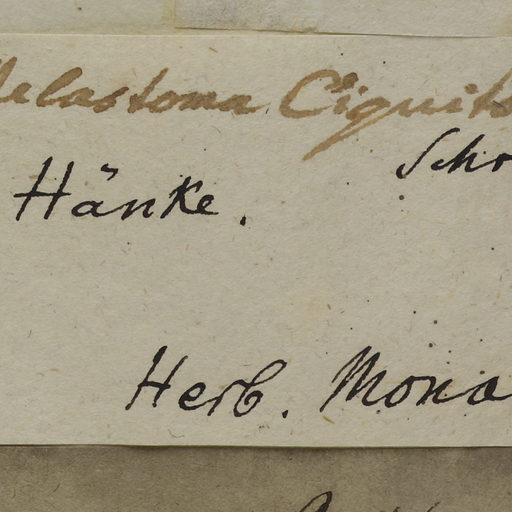 elastoma Ciquit
Scho
Hänke.
Herb. Mona